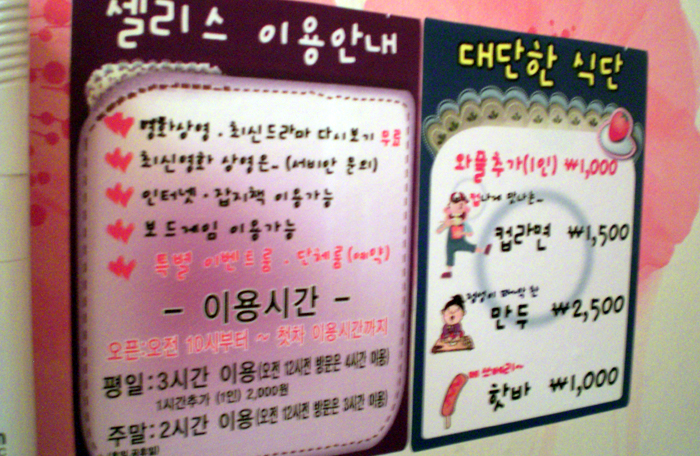 셀리스 이용안내
영화상영 . 최신드라마 다시보기 무료
최신영화 상영은.. (서비안 문의)
인터넷 · 잡지책 이용가능
보드게임 이용가능
특별 이벤트룸 . 단체룸 (예약)
- 이용시간 -
오픈:오전 10시부터 ~ 첫차 이용시간까지
평일:3시간 이용(오전 12시전 방문은 4시간 이용)
1시간추가 (1인) 2,000원
주말:2시간 이용(오전 12시전 방문은 3시간 이용)
대단한 식단
와플추가(1인) ₩1,000
맛나는..
컵라면 ₩1,500
만두 ₩2,500
핫바 ₩1,000